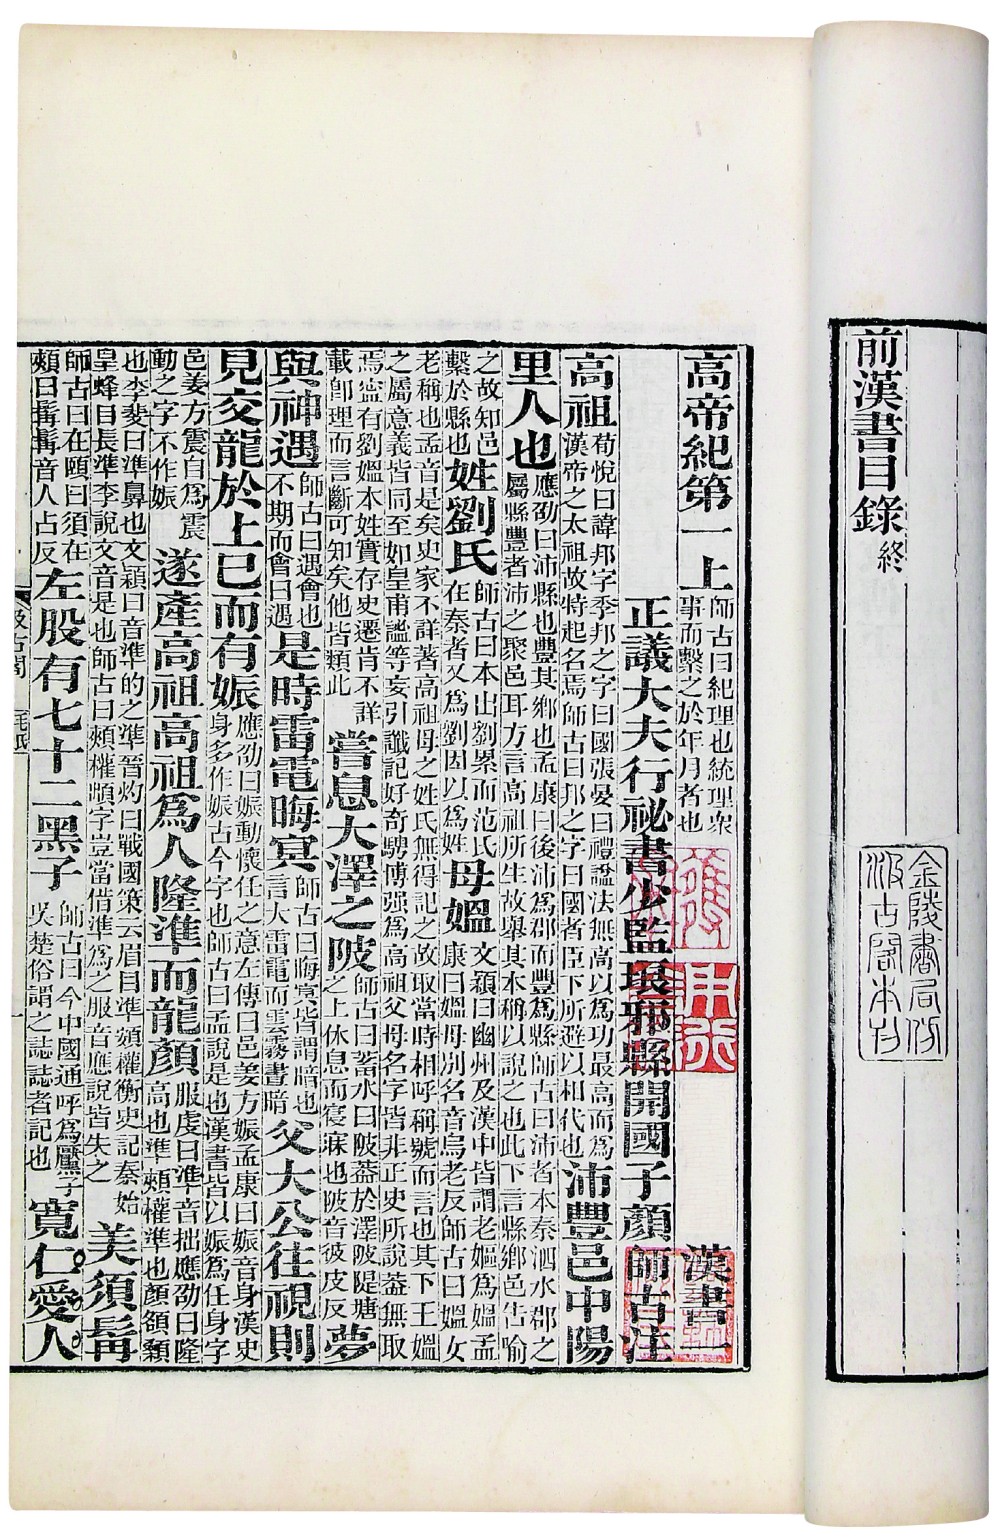 前漢書目錄終
金陵書局仿
汲古閣本刊
高帝紀第一上師古曰紀理也統理衆事而繫之於年月者也 漢書一
正議大夫行祕書少監琅邪縣開國子顏師古注
高祖荀悅曰諱邦字季邦之字曰國張晏曰禮諡法無高以爲功最高而爲漢帝之太祖故特起名焉師古曰邦之字曰國者臣下所避以相代也沛豐邑中陽
里人也應劭曰沛縣也豐其鄉也孟康曰後沛爲郡而豐爲縣師古曰沛者本秦泗水郡之屬縣豐者沛之聚邑耳方言高祖所生故舉其本稱以說之也此下言縣鄉邑告喻
之故知邑繫於縣也姓劉氏師古曰本出劉累而范氏在秦者又爲劉因以爲姓母媼文穎曰幽州及漢中皆謂老嫗爲媼孟康曰媼母別名音烏老反師古曰媼女
老稱也孟音是矣史家不詳著高祖母之姓氏無得記之故取當時相呼稱號而言也其下王媼之屬意義皆同至如皇甫謐等妄引讖記好奇騁博強爲高祖父母名字皆非正史所說蓋無取
焉寧有劉媼本姓實存史遷肯不詳載卽理而言斷可知矣他皆類此嘗息大澤之陂師古曰蓄水曰陂蓋於澤陂隄塘之上休息而寢寐也陂音彼皮反夢
與神遇師古曰遇會也不期而會曰遇是時雷電晦冥師古曰晦冥皆謂暗也言大雷電而雲霧晝暗父大公往視則
見交龍於上已而有娠應劭曰娠動懷任之意左傳曰邑姜方娠孟康曰娠音身漢史身多作娠古今字也師古曰孟說是也漢書皆以娠爲任身字
邑姜方震自爲震動之字不作娠遂產高祖高祖爲人隆準而龍顏服虔曰準音拙應劭曰隆高也準頰權準也顏頟顙
也李斐曰準鼻也文穎曰音準的之準晉灼曰戰國策云眉目準頞權衡史記秦始皇蜂目長準李說文音是也師古曰頰權頄字豈當借準爲之服音應說皆失之美須髯
師古曰在頤曰須在頰曰髯髯音人占反左股有七十二黑子師古曰今中國通呼爲黶子吳楚俗謂之誌誌者記也寬仁愛人
汲古閣
毛氏